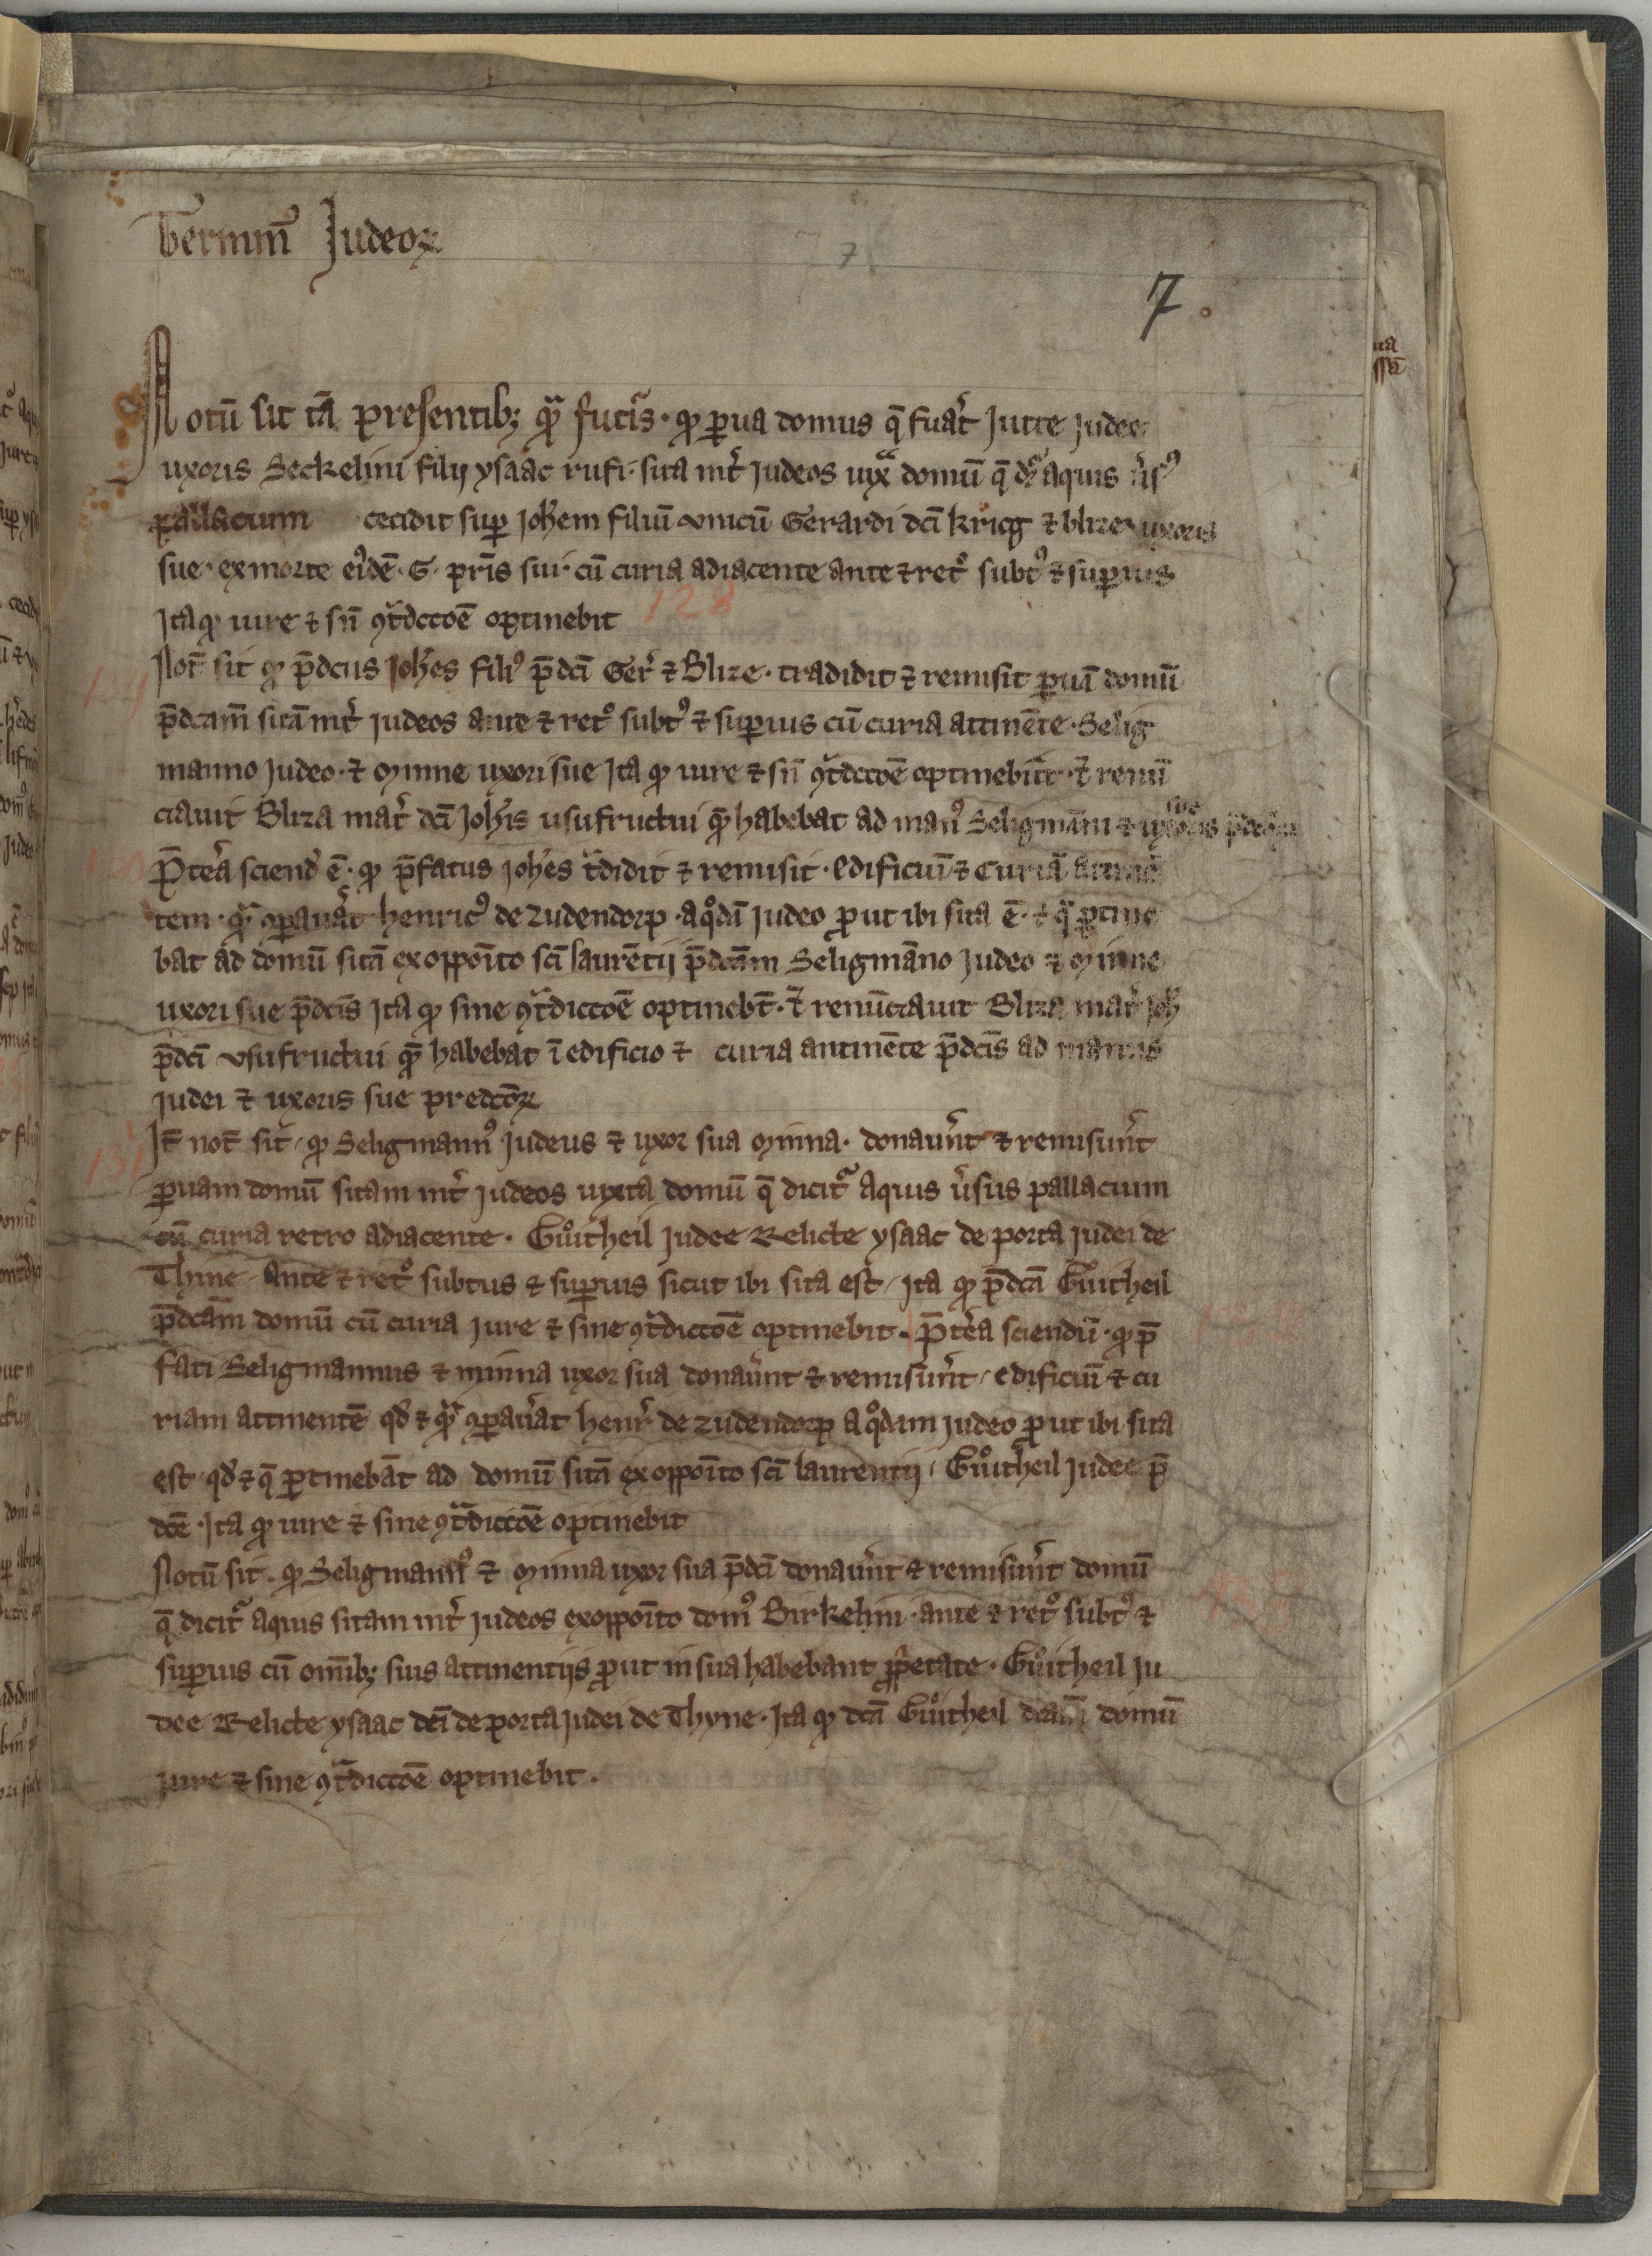 Termini Judeoꝝ
7
7.
Notū sit tā presentibꝫ q̄ꝫ futis · qꝫ ꝑua domus q̄ fuat Jutte Judee
uxoris Seckelini filij ysaac rufi · sita int̾ Judeos iux̄ domū q̄ dr̄ aquis v̾sꝰ
pallacium cecidit suꝑ Joh̄em filiū vnicū Gerardi dc̄i kricg ⁊ blize uxoris
sue · ex morte eiꝰdē · G · pr̄is sui · cū curia adiacente ante ⁊ ret° subtꝰ ⁊ suꝑius
Ita qꝫ iure ⁊ sn̄ ꝯt̄dccōē optinebit 128
Not̄ sit qꝫ p̄dcus Joh̄es filiꝰ p̄dc̄i Ger̾ ⁊ Blize · tradidit ⁊ remisit ꝑuā domū
p̄dcam̄ sitā int̾ Judeos ante ⁊ ret° subtꝰ ⁊ suꝑius cū curia attinēte · Selig
manno Judeo · ⁊ Minne uxori sue Ita qꝫ iure ⁊ sn̄ ꝯt̄dccōē optinebūt · ⁊ renū
ciauit Bliza mat̾ dc̄i Joh̄is usufructui quē habebat ad manꝰ Seligmāni ⁊ uxoris sue
P̄tea sciend̾ ē · qꝫ p̄fatus Joh̄es t̄didit ⁊ remisit · edificiū ⁊ Curiā attinē
tem · quā ꝯꝑauat henricꝰ de zudendorp · a q°dā Judeo ꝓut ibi sita ē · ⁊ q̄ ꝑtine
bat ad domū sitā ex oppoīto sc̄i laurētij p̄dcām Seligmāno Judeo ⁊ Minne
uxori sue p̄dcīs Ita qꝫ sine ꝯt̄diccōē optinebt̄ · ⁊ renūctauit Bliza mat̾ Joh̄
p̄dc̄i vsufructui quē habebat ī edificio ⁊ curia attinēte p̄dcīs ad manus
Judei ⁊ uxoris sue predcōꝝ
131 It̄ not̄ sit · qꝫ Seligmannꝰ Judeus ⁊ uxor sua Minna · donaūnt ⁊ remisūnt
ꝑuam domū sitam int̾ Judeos iuxta domū q̄ dicit᷑ aquis v̾sus pallacium
cū curia retro adiacente · Guͦitheil Judee Relicte ysaac de porta Judei de
Thine · Ante ⁊ ret° subtus ⁊ suꝑius sicut ibi sita est / Ita qꝫ p̄dcā Guͦitheil
p̄dcām domū cū curia Jure ⁊ sine ꝯt̄diccōē optinebit · P̄tea sciendū · qꝫ p̄
fati Seligmannus ⁊ Minna uxor sua donaūnt ⁊ remisūnt / edificiū ⁊ cu
riam attinentē qd̾ ⁊ quā ꝯꝑauat henr̾ de zudendorp a q°dam Judeo ꝓut ibi sita
est · qd̾ ⁊ q̄ ꝑtinebāt ad domū sitā ex oppoīto sc̄i laurentij / Guͦitheil Judee p̄
dcē · Ita qꝫ iure ⁊ sine ꝯt̄diccōē optinebit
Notū sit · qꝫ Seligmannꝰ ⁊ Minna uxor sua p̄dc̄i donaūnt ⁊ remisūnt domū
q̄ dicit᷑ aquis sitam int̾ Judeos ex oppoīto domꝰ Birkelini · ante ⁊ ret° subtꝰ ⁊
suꝑius cū om̄ibꝫ suis attinentijs ꝓut in sua habebant ꝓp̾etate · Guͦitheil Ju
dee Relicte ysaac dc̄i de porta Judei de Thyne · Ita qꝫ dc̄ā Guͦitheil dcām domū
Jure ⁊ sine ꝯt̄diccōē optinebit ·